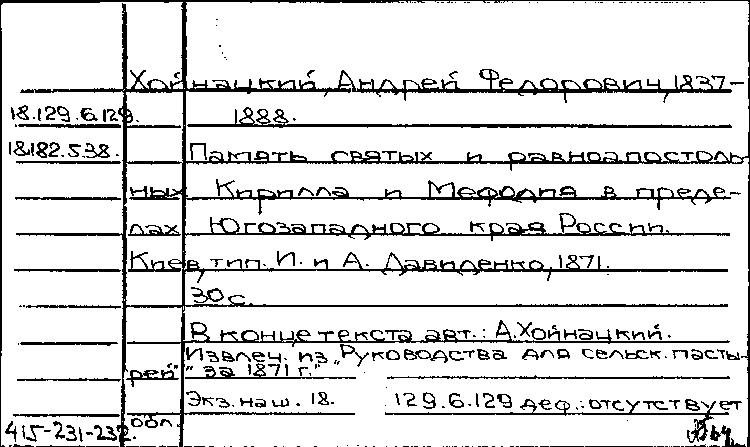 Хойнацкий, Андрей Федорович, 1837-
18.129.6.129. 1888.
18.182.5.38. Память святых и равноапостоль-
ных Кирилла и Мефодия в преде-
лах Югозападного края России.
Киев, тип. И. и А. Давиденко, 1871.
30 с.
В конце текста авт.: А.Хойнацкий.
Извлеч. из „Руководства для сельск. пасты-
рей" за 1871 г."
Экз. наш. 18. 129.6.129 деф.: отсутствует
415-231-232. обл.